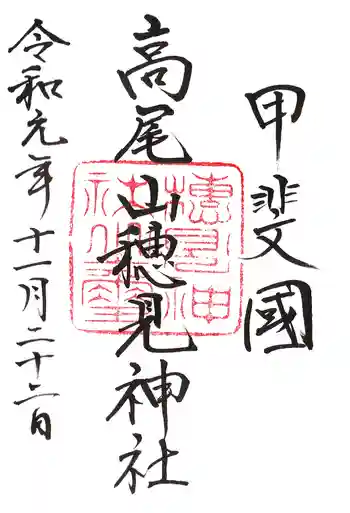 甲斐國
高尾山穂見神社
令和元年十一月二十二日